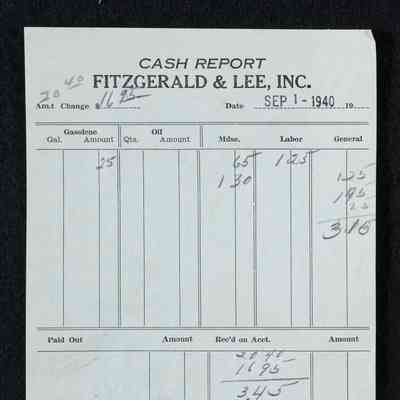 CASH REPORT
FITZGERALD & LEE, INC.
20 40
Am.t Change $ 16 95
Date SEP 1 - 1940 19
Gasolene Oil
Gal. Amount Qts. Amount Mdse. Labor General
25 65 1 25
1 30 1 25
1 95
2 5
3 4 5
Paid Out Amount Rec'd on Acct. Amount
20 40
16 95
3 45